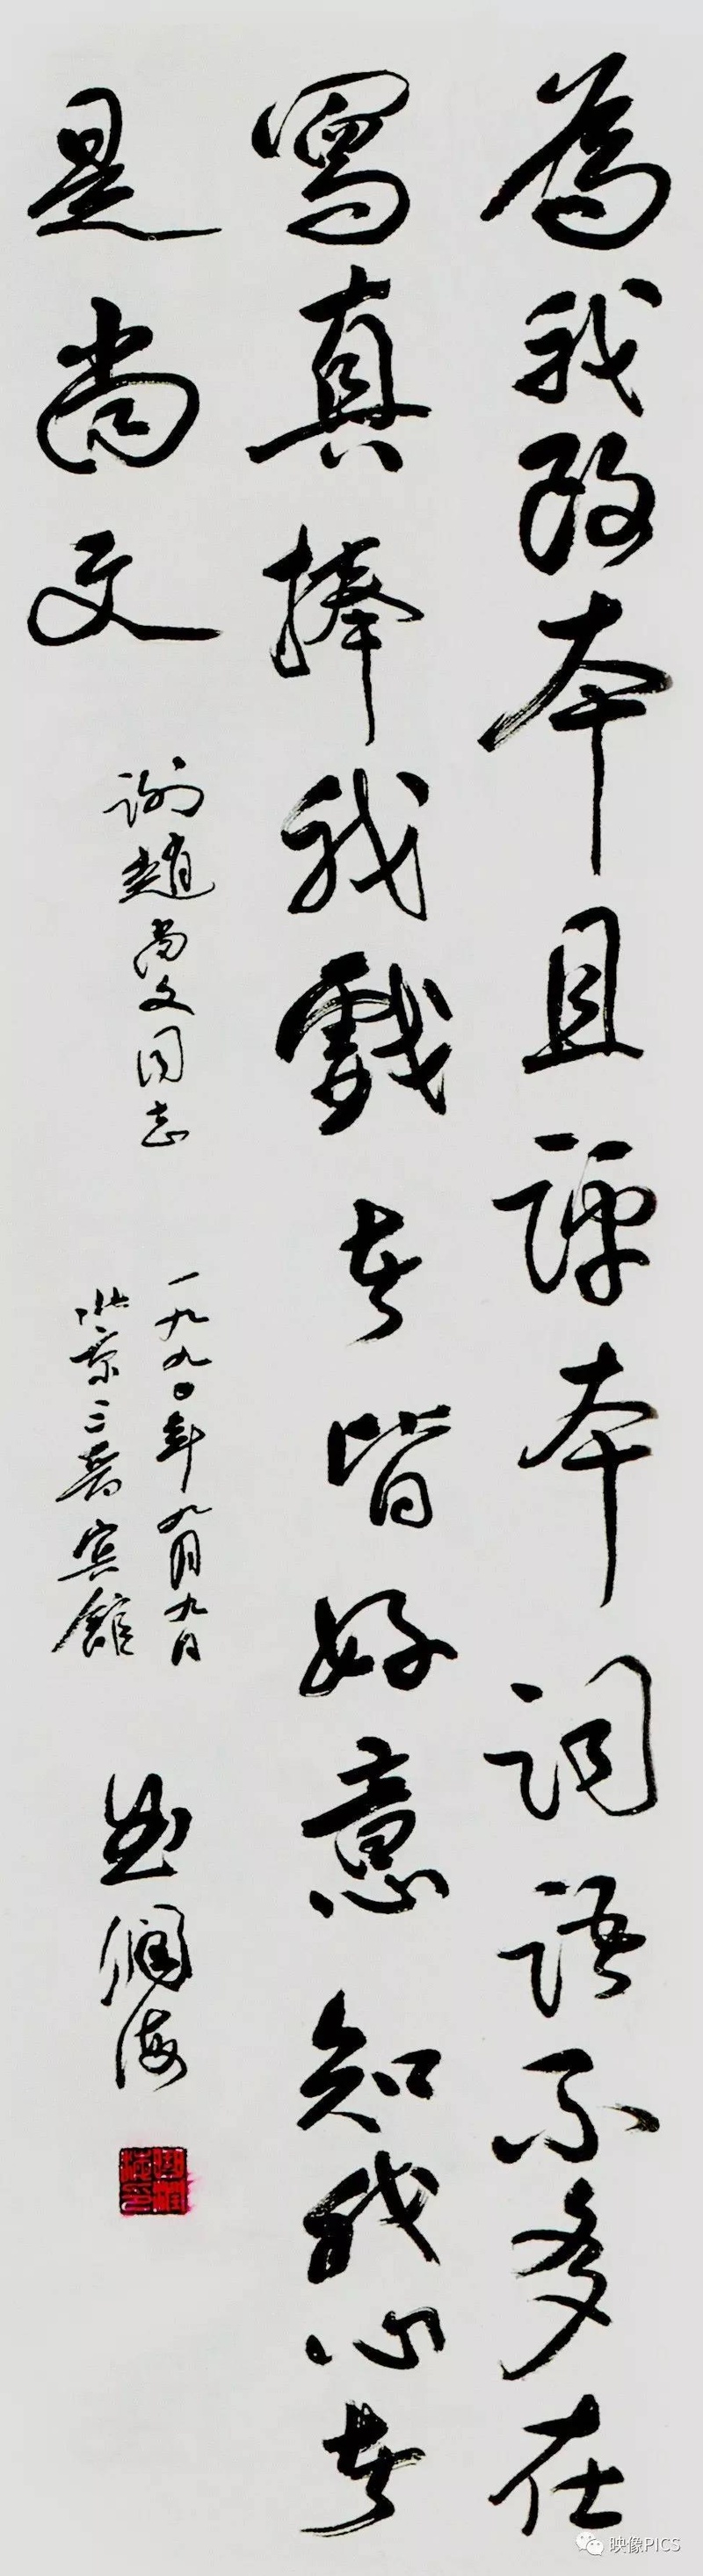 為我改本且評本詞語不多在
寫真捧我戲者皆好意知我心者
是尚文
謝趙尚文同志
一九九〇年九月九日
北京三晋宾館
曲潤海
映像PICS